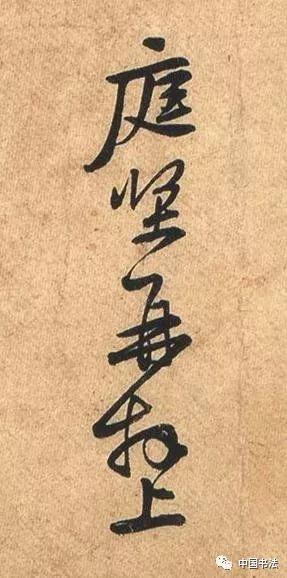 庭坚再拜上
中国书法